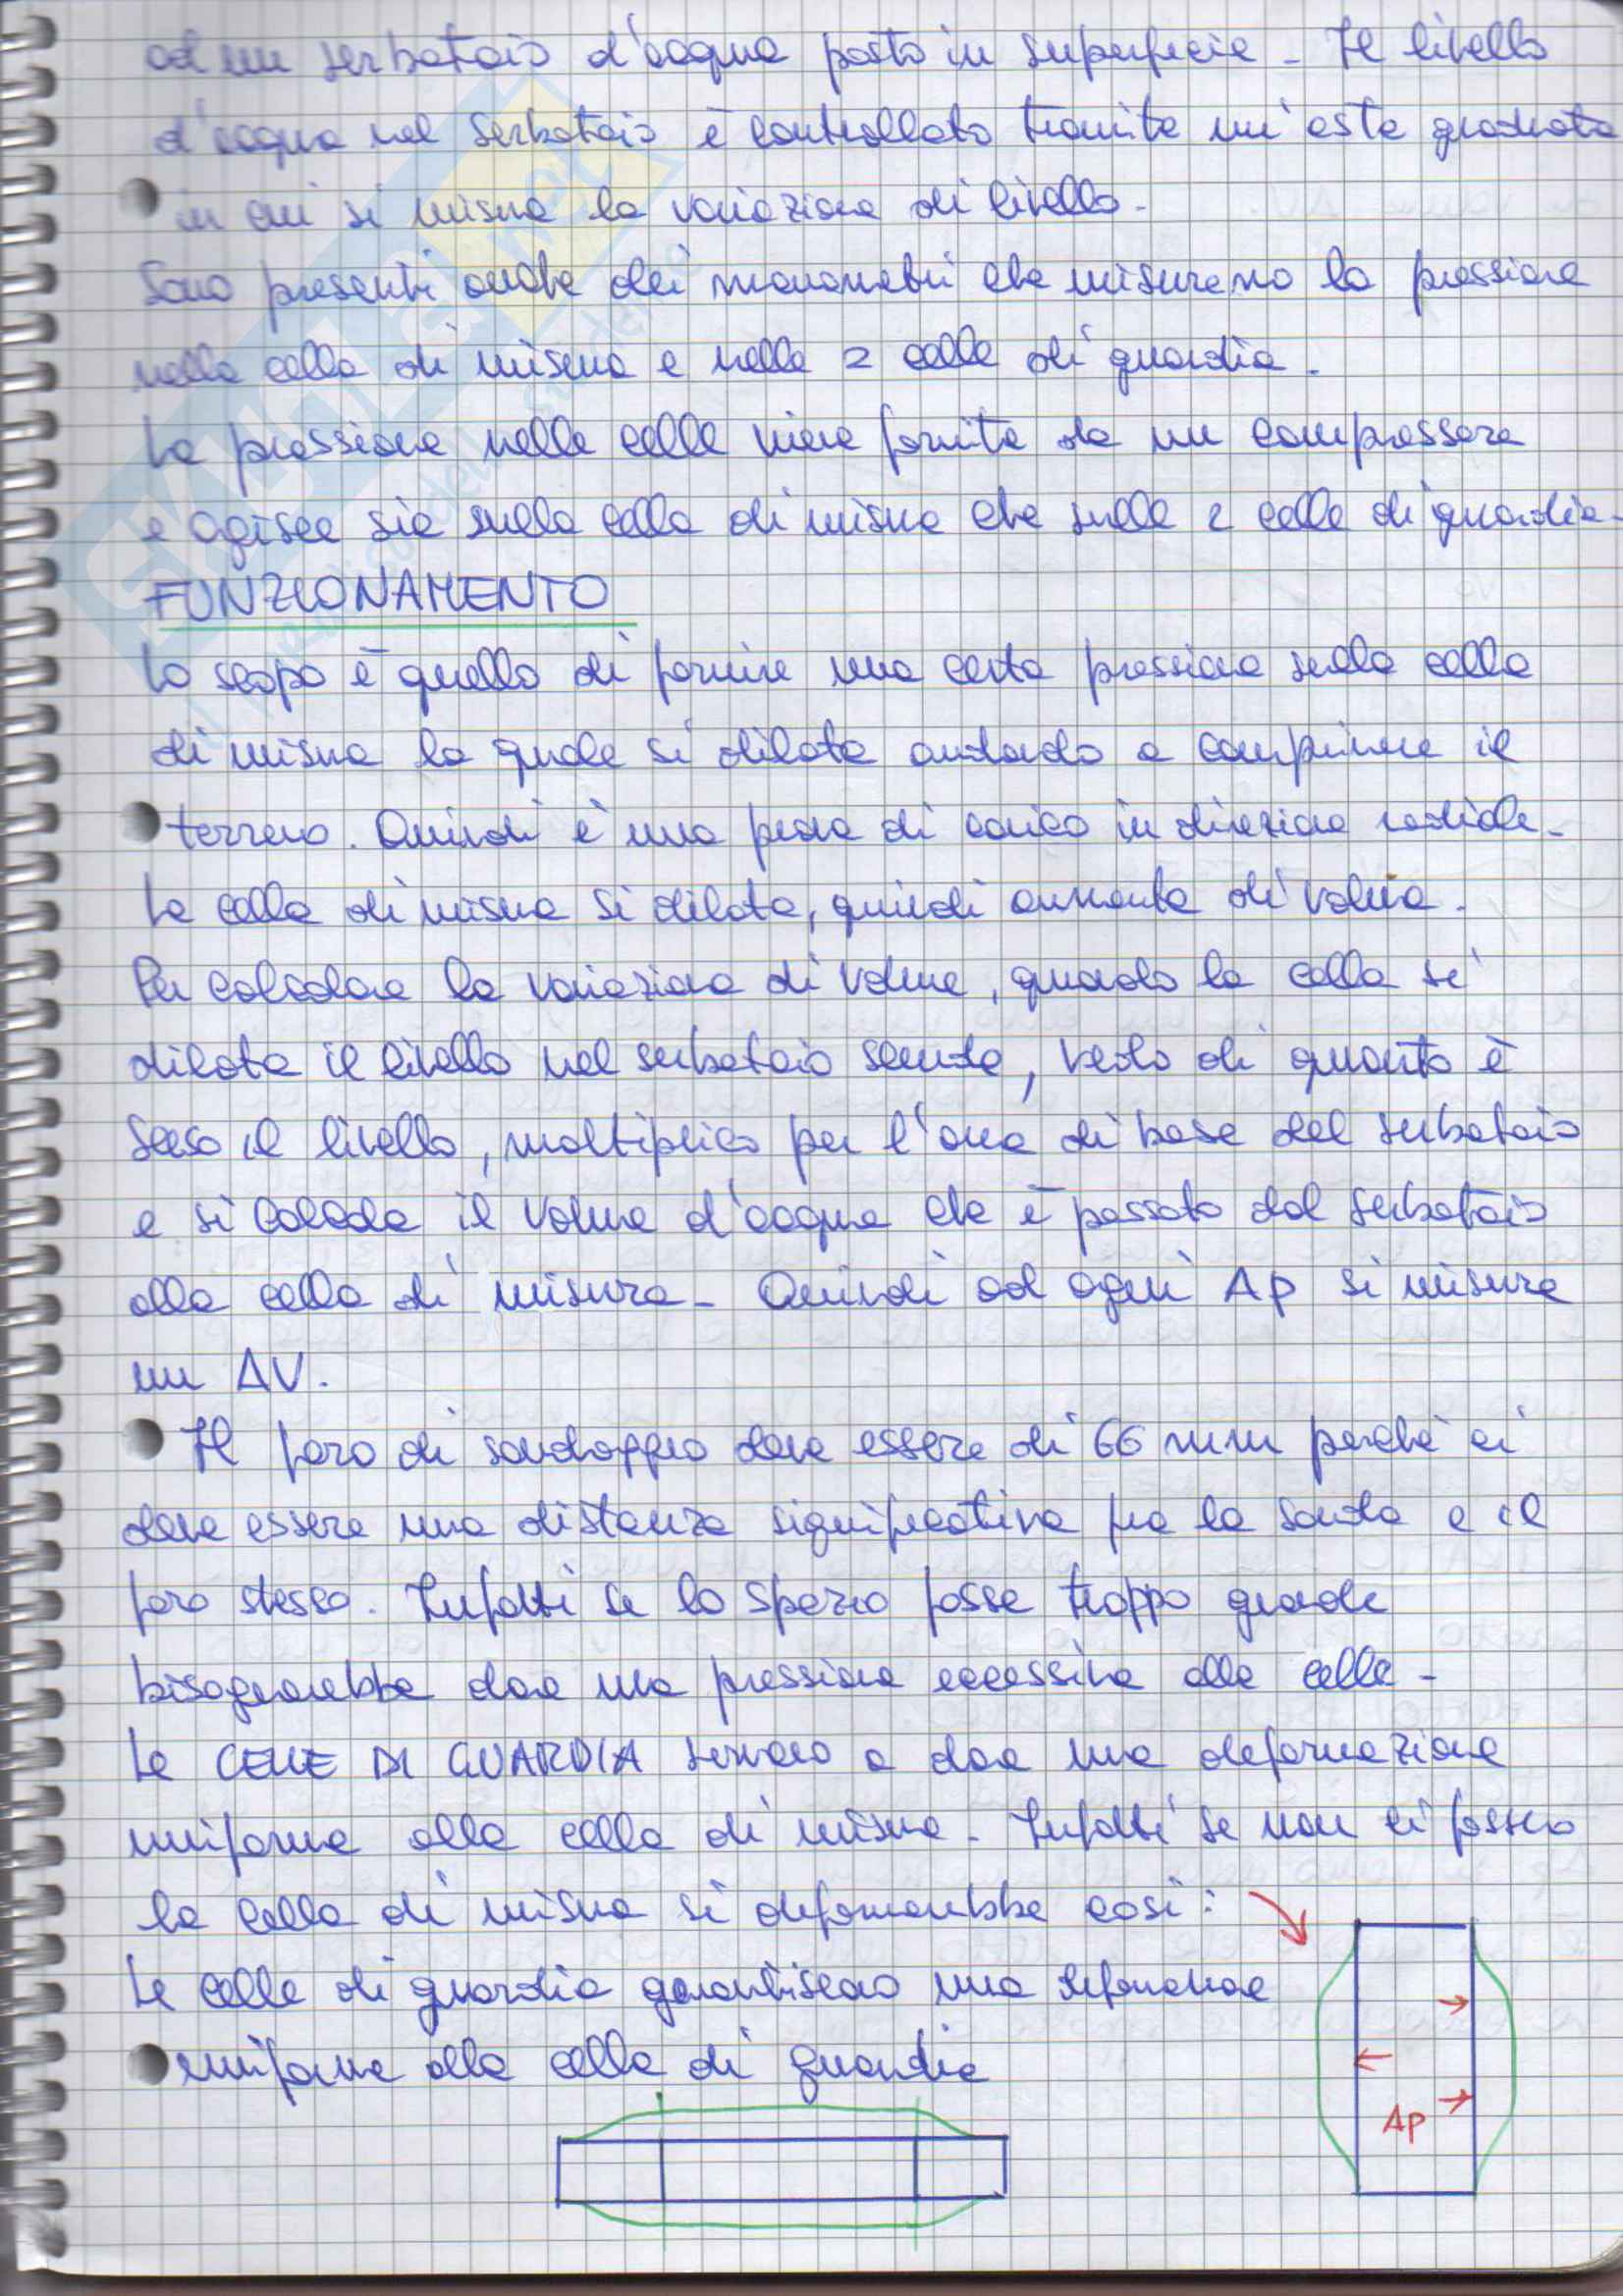 ad un serbatoio d'acqua posto in superficie - Il livello
d'acqua nel serbatoio è controllato tramite un'asta graduata
in cui si misura la variazione di livello -
Sono presenti anche dei manometri che misurano la pressione
nella cella di misura e nelle 2 celle di guardia.
La pressione nelle celle viene fornita da un compressore
e agisce sia sulla cella di misura che sulle 2 celle di guardia -
FUNZIONAMENTO
Lo scopo è quello di fornire una certa pressione sulla cella
di misura la quale si dilata andando a comprimere il
terreno. Quindi è una prova di carico in direzione radiale -
La cella di misura si dilata, quindi aumenta di volume -
Per calcolare la variazione di volume, quando la cella si
dilata il livello nel serbatoio scende, vedo di quanto è
sceso il livello, moltiplico per l'area di base del serbatoio
e si calcola il volume d'acqua che è passato dal serbatoio
alla cella di misura - Quindi ad ogni Δp si misura
un ΔV.
Il foro di sondaggio deve essere di 66 mm perchè ci
deve essere una distanza significativa fra la sonda e il
foro stesso. Infatti se lo spazio fosse troppo grande
bisognerebbe dare una pressione eccessiva alle celle -
Le CELLE DI GUARDIA servono a dare una deformazione
uniforme alla cella di misura - Infatti se non ci fossero
la cella di misura si deformerebbe così:
Le celle di guardia garantiscono una deformazione
uniforme alla cella di guardia
Δp
SKUOLA.net